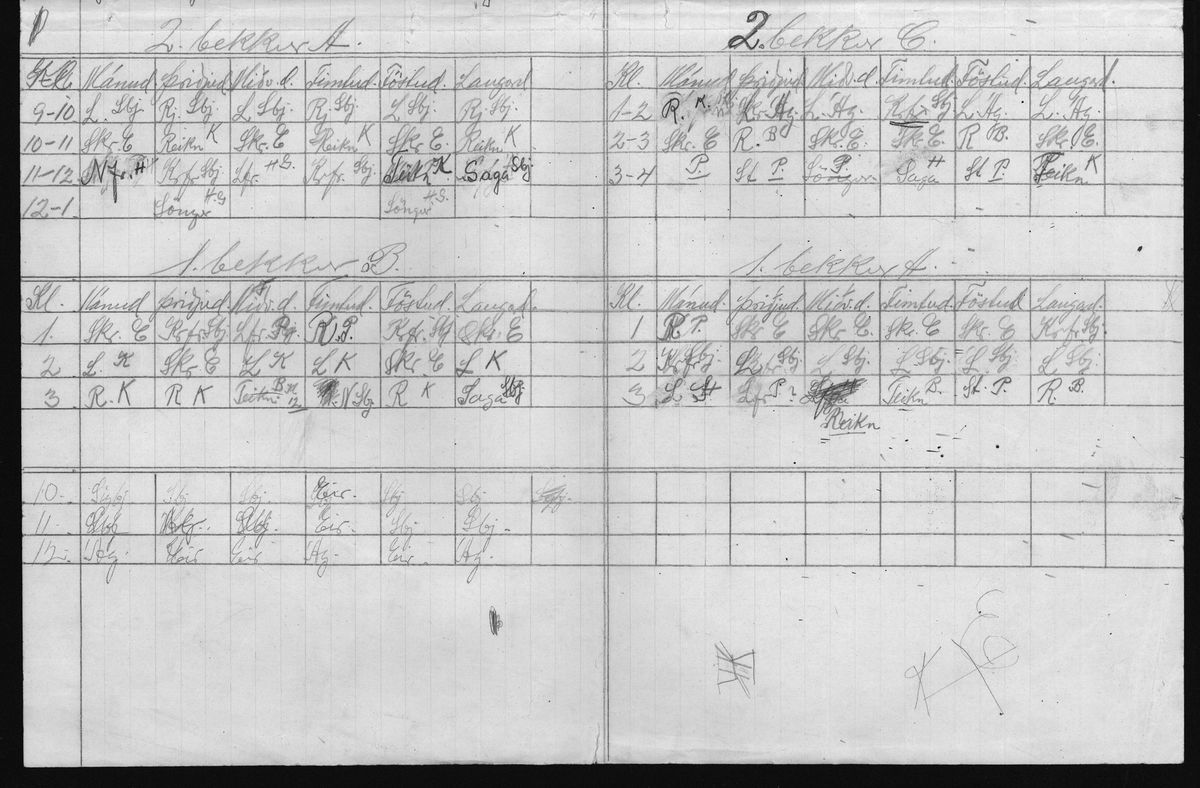 2. bekkur A.
Kl. Mánud. Þriðjud. Miðv.d. Fimtud. Föstud. Laugad.
9-10 L. Sbj. R. Sbj. L Sbj. R. Sbj. L Sbj. R. Sbj.
10-11 Skr. E Reikn K Skr. E. Reikn K Skr. E Reikn K
11-12 Nfr. H Krfr. Sbj Lfr. H.G. Krfr. Sbj. Teikn. K Saga Sbj
12-1 Söngur H.G. Söngur H.G.
2. bekkur C.
Kl. Mánud. Þriðjud. Miðv.d. Fimtud. Föstud. Laugad.
1-2 R. K. L. Ag. Sbj L. Ag. L. Ag.
2-3 Skr. E R. B Skr. E. Skr. E. R B. Skr. E.
3-4 P. St P. Söngur P. Saga H St P. Teikn K
1. bekkur B.
Kl. Mánud. Þriðjud. Miðv.d. Fimtud. Föstud. Laugad.
1. Skr. E Krfr. Sbj Lfr. R. P. Krfr. Sbj Skr. E
2 L. K Skr. E L K L K Skr. E L K
3 R. K R K Teikn. B N Sbj R K Saga Sbj
1. bekkur A.
Kl. Mánud. Þriðjud. Miðv.d. Fimtud. Föstud. Laugad.
1 R. P. Skr. E Skr. E. Skr. E Skr. E Krfr. Sbj
2 Krfr. Sbj. Sbj. L Sbj. L Sbj. L Sbj L Sbj.
3 L St Lfr P. ? Teikn B. St. P. R. B.
Reikn
10. Sbj. Sbj. Eir. Sbj Sbj.
11. Sbj. Eir. Sbj. Sbj.
12. Ag. Eir Eir Ag. Eir. Ag.